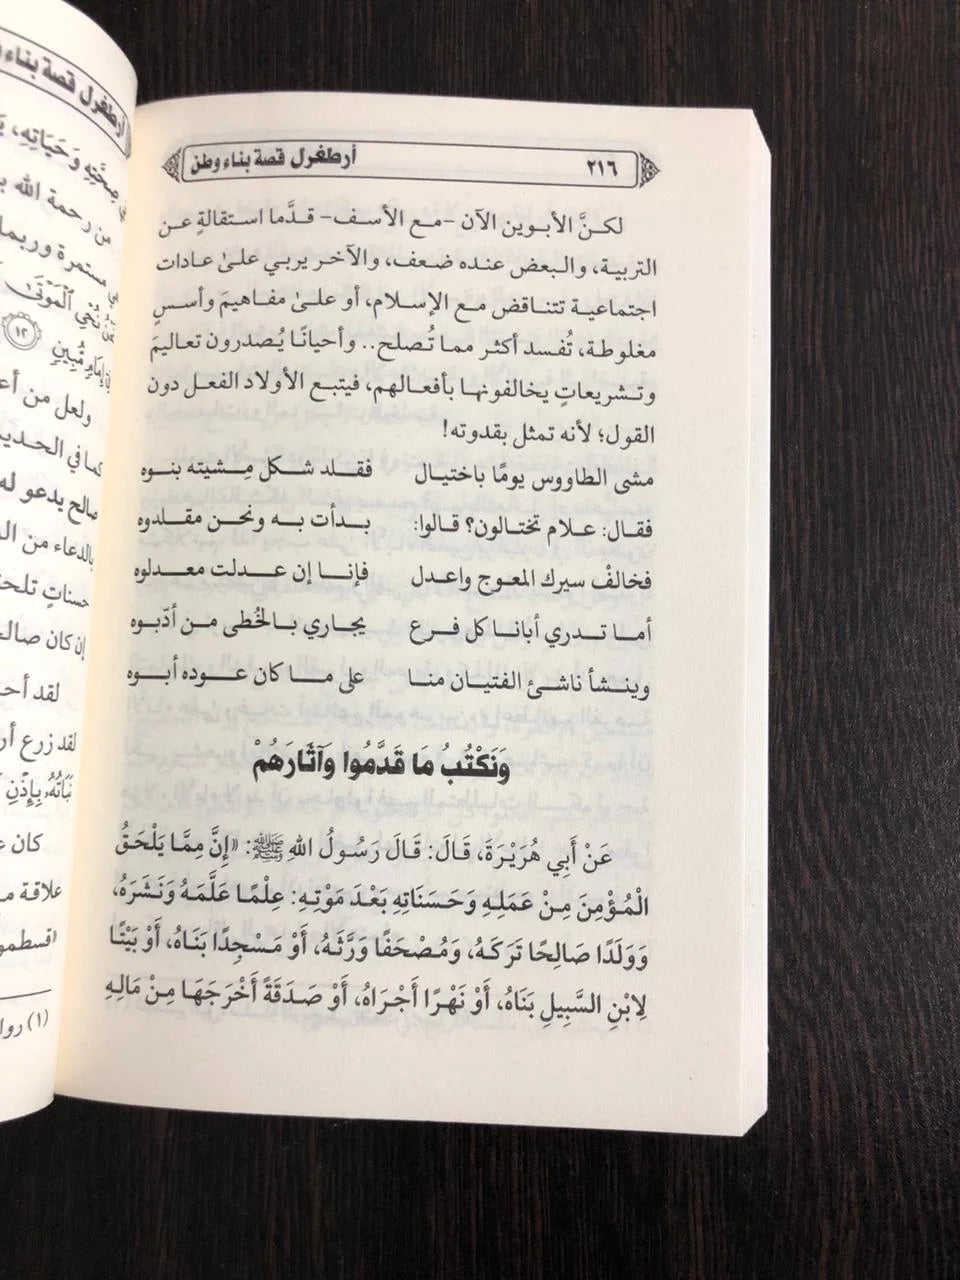 ٢١٦ أرطغرل قصة بناء وطن
لكنَّ الأبوين الآن -مع الأسف- قدَّما استقالةٍ عن
التربية، والبعض عنده ضعف، والآخر يربي علىٰ عادات
اجتماعية تتناقض مع الإسلام، أو علىٰ مفاهيمَ وأسسٍ
مغلوطة، تُفسد أكثر مما تُصلح.. وأحيانًا يُصدرون تعاليمَ
وتشريعاتٍ يخالفونها بأفعالهم، فيتبع الأولاد الفعل دون
القول؛ لأنه تمثل بقدوته!
مشى الطاووس يومًا باختيال فقلد شكل مِشيته بنوه
فقال: علام تختالون؟ قالوا: بدأت به ونحن مقلدوه
فخالفْ سيرك المعوج واعدل فإنا إن عدلت معدلوه
أما تدري أبانا كل فرع يجاري بالخُطى من أدّبوه
وينشأ ناشئ الفتيان منا على ما كان عوده أبوه
وَنَكْتُبُ مَا قَدَّمُوا وَآثَارَهُمْ
عَنْ أَبِي هُرَيْرَةَ، قَالَ: قَالَ رَسُولُ اللهِ ﷺ: «إِنَّ مِمَّا يَلْحَقُ
الْمُؤْمِنَ مِنْ عَمَلِهِ وَحَسَنَاتِهِ بَعْدَ مَوْتِهِ: عِلْمًا عَلَّمَهُ وَنَشَرَهُ،
وَوَلَدًا صَالِحًا تَرَكَهُ، وَمُصْحَفًا وَرَّثَهُ، أَوْ مَسْجِدًا بَنَاهُ، أَوْ بَيْتًا
لِابْنِ السَّبِيلِ بَنَاهُ، أَوْ نَهْرًا أَجْرَاهُ، أَوْ صَدَقَةً أَخْرَجَهَا مِنْ مَالِهِ
أرطغرل قصة بناء
صِحَّتِهِ وَحَيَاتِهِ،
من رحمة الله
مستمرة وربما
نُحْيِ الْمَوْتَىٰ
إِمَامٍ مُّبِينٍ ١٢
ولعل من
كما في الحديث
صالح يدعو له
بالدعاء من
حسناتٍ
إن كان
لقد
لقد زرع
نَبَاتُهُ بِإِذْنِ
كان
علاقة
(١)